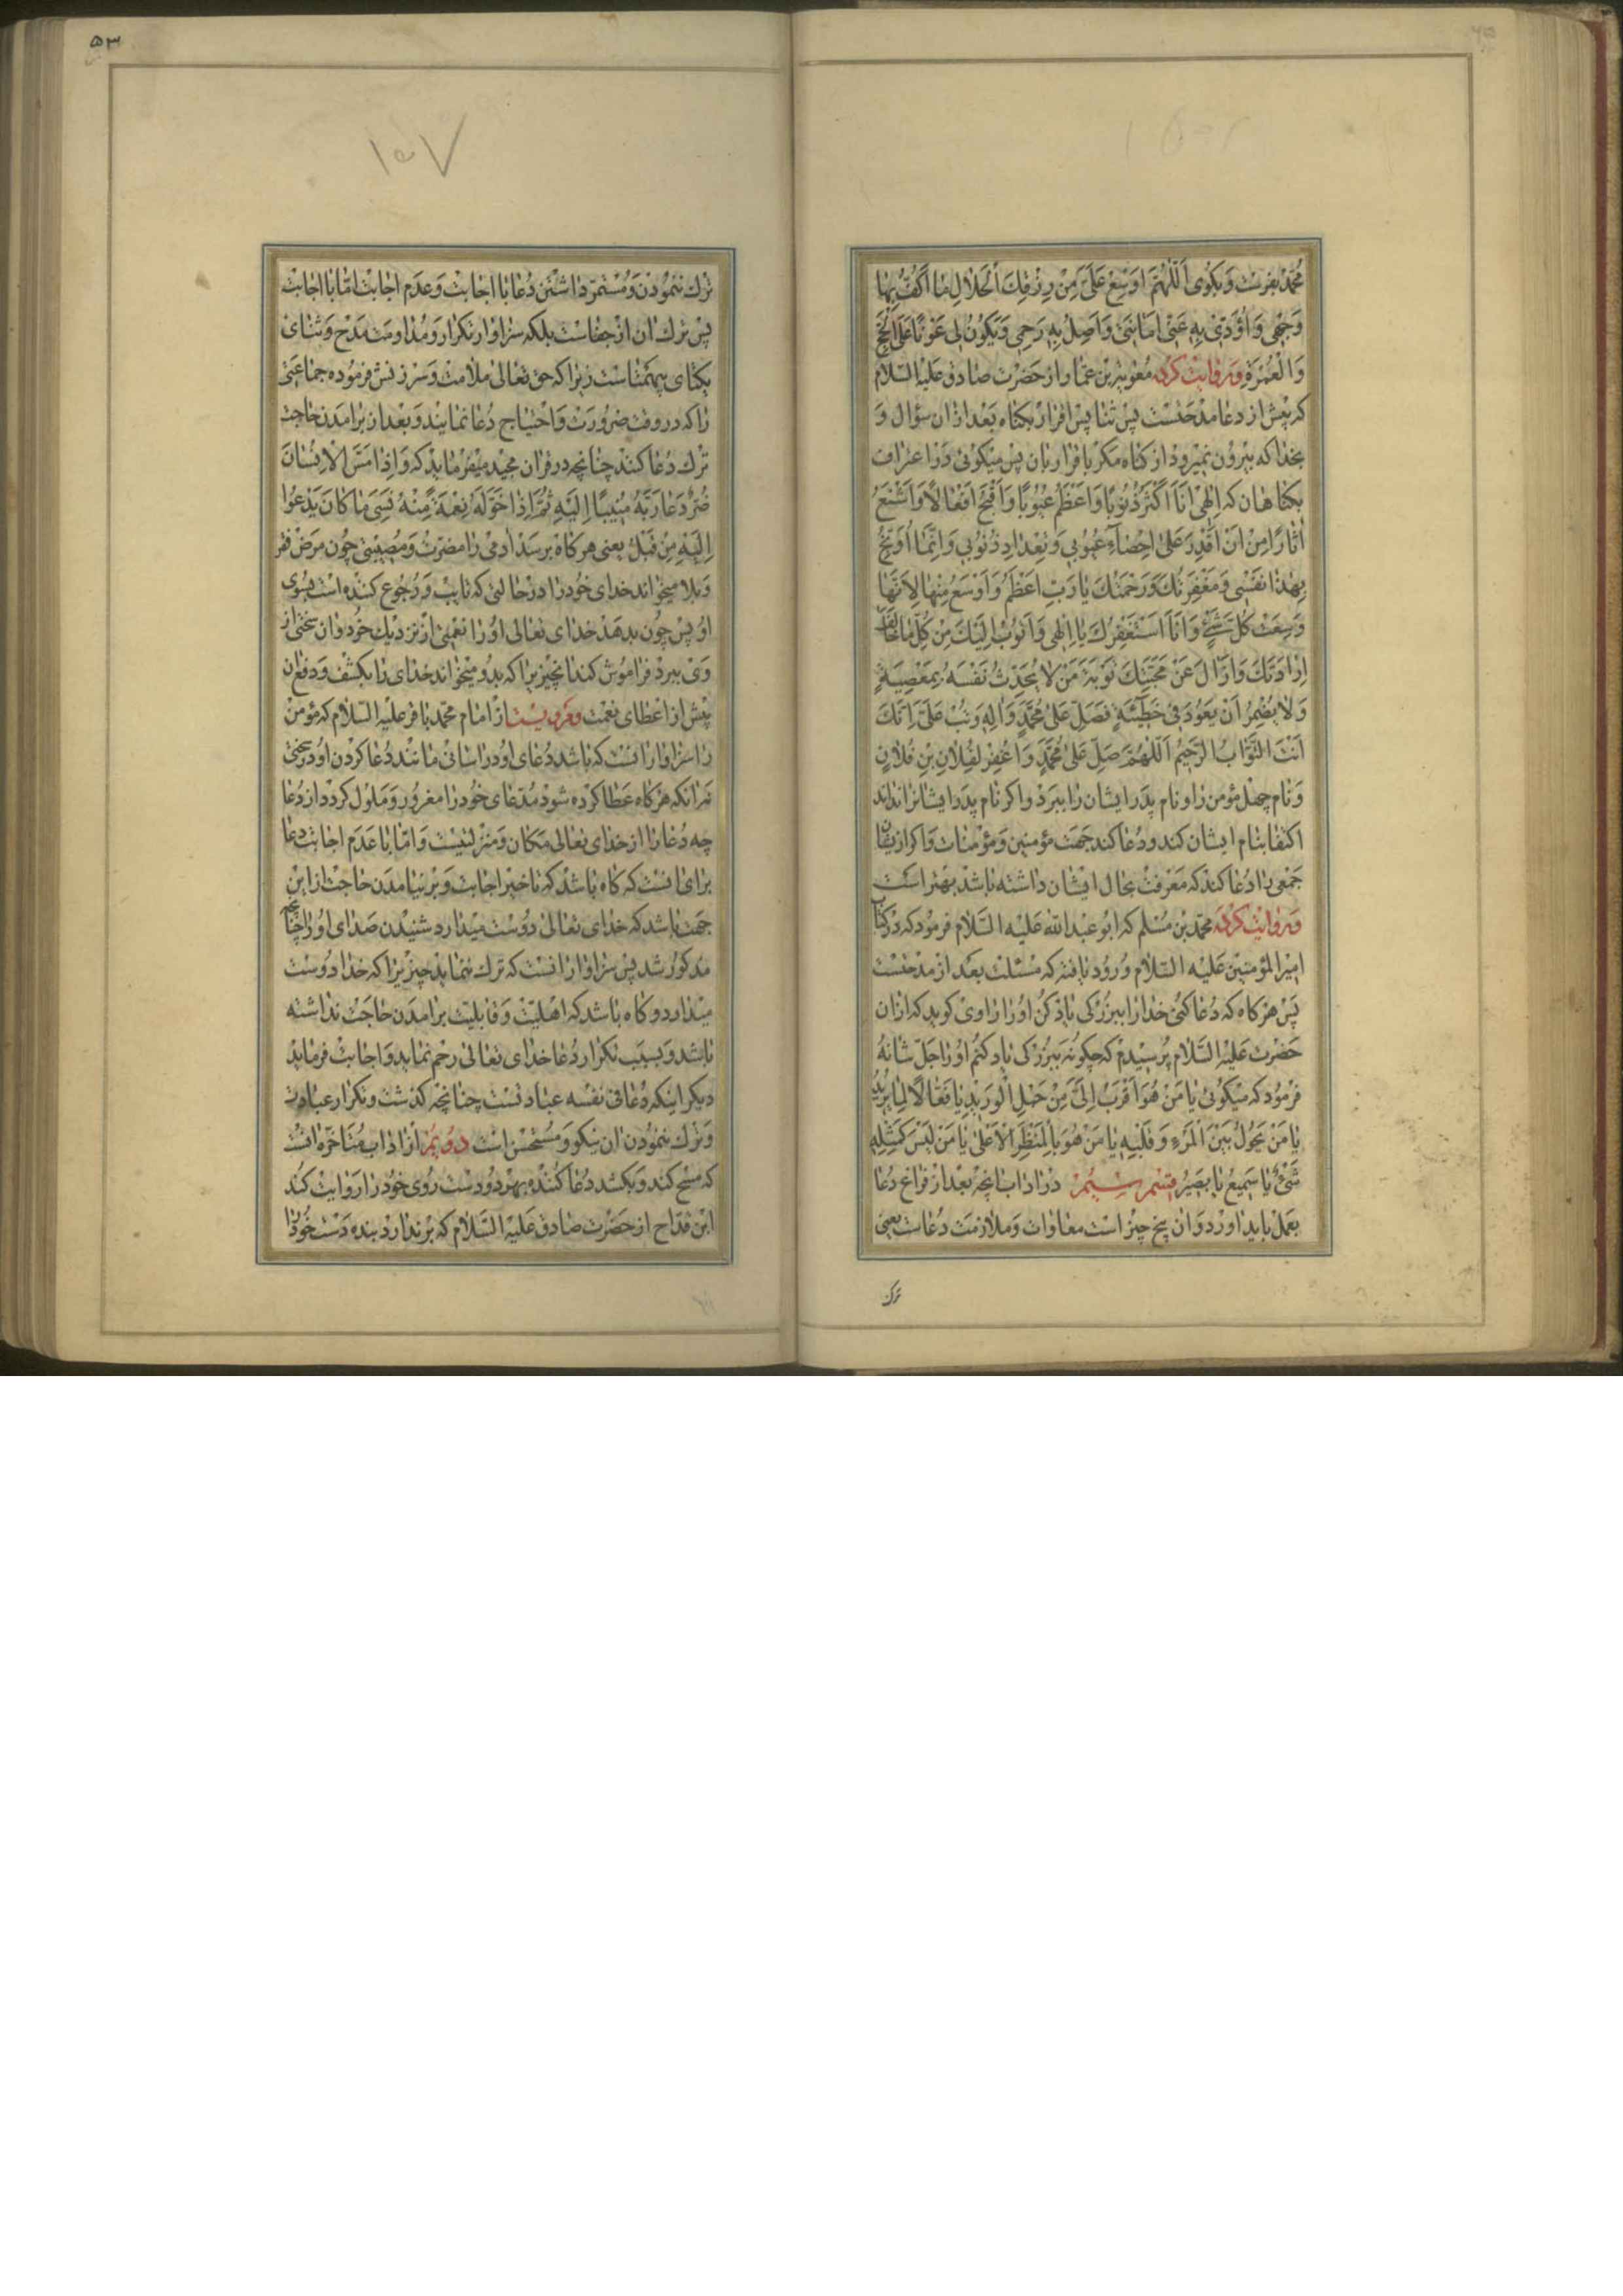 محمد بفرست و بگوی اَللّهُمَّ اَوْسِعْ عَلَیَّ مِنْ رِزْقِكَ الْحَلالِ ما اَكُفُّ بِها
وَجْهی وَ اُؤَدّی بِهِ عَنّی اَمانَتی وَ اَصِلُ بِهِ رَحِمی وَ یَكُونُ لی عَوْنًا عَلَی الْحَجِّ
وَ الْعُمْرَةِ و روایت کرده معویة بن عمار از حضرت صادق علیه السلام
که پیش از دعا مدحتست پس ثنا پس اقرار بکناه بعد از ان سؤال و
بخدا که بیرون نمیرود از کناه مکر باقرار بان پس میکوئی در اعتراف
بکناهان که اِلٰهی اَنَا اَكْثَرُ ذُنُوبًا وَ اَعْظَمُ عُیُوبًا وَ اَقْبَحُ اَفْعالًا وَ اَشْنَعُ
اٰثارًا مِنْ اَنْ اَقْدِرَ عَلیٰ اِحْصاءِ عُیُوبی وَ تِعْدادِ ذُنُوبی وَ اِنَّما اُوَبِّخُ
بِهٰذا نَفْسی وَ مَغْفِرَتُكَ وَ رَحْمَتُكَ یا رَبِّ اَعْظَمُ وَ اَوْسَعُ مِنْها لِاَنَّها
وَسِعَتْ كُلَّ شَیْءٍ وَ اَنَا اَسْتَغْفِرُكَ یا اِلٰهی وَ اَتُوبُ اِلَیْكَ مِنْ كُلِّ ما خالَفَ
اِرادَتَكَ وَ ازالَ عَنْ مَحَبَّتِكَ تَوْبَةَ مَنْ لا یُحَدِّثُ نَفْسَهُ بِمَعْصِیَةٍ
وَ لا یُضْمِرُ اَنْ یَعُودَ فی خَطیئَةٍ فَصَلِّ عَلیٰ مُحَمَّدٍ وَ اٰلِهِ وَ تُبْ عَلَیَّ اِنَّكَ
اَنْتَ التَّوّابُ الرَّحیمُ اَللّهُمَّ صَلِّ عَلیٰ مُحَمَّدٍ وَ اغْفِرْ لِفُلانِ بْنِ فُلانٍ
و نام چهل مؤمن را و نام پدر ایشان را ببرد و اکر نام پدر ایشانرا نداند
اکتفا بنام ایشان کند و دعا کند جهت مؤمنین و مؤمنات و اکر از یشان
جمعی را دعا کند که معرفت بحال ایشان داشته باشد بهتر است
و روایت کرده محمد بن مسلم که ابو عبد الله علیه السلام فرمود که در کتاب
امیر المؤمنین علیه السلام ورود یافته که مسئلت بعد از مدحتست
پس هر کاه که دعا کنی خدا را ببزرکی یاد کن او را راوی کوید که از ان
حضرت علیه السلام پرسیدم که چکونه ببزرکی یاد کنم او را جل شانه
فرمود که میکوئی یا مَنْ هُوَ اَقْرَبُ اِلَیَّ مِنْ حَبْلِ الْوَریدِ یا فَعّالًا لِما یُریدُ
یا مَنْ یَحُولُ بَیْنَ الْمَرْءِ وَ قَلْبِهِ یا مَنْ هُوَ بِالْمَنْظَرِ الْاَعْلیٰ یا مَنْ لَیْسَ كَمِثْلِهِ
شَیْءٌ یا سَمیعُ یا بَصیرُ قسم سیم در اداب انچه بعد از فراغ دعا
بعمل باید اورد و ان پنج چیز است معاوات و ملازمت دعاست یعنی
ترک
۵۳
۱۵۷
ترک ننمودن و مستمر داشتن دعا با اجابت و عدم اجابت اما با اجابت
پس ترک ان از جفاست بلکه سزاوار تکرار و مداومت مدح و ثنای
یکتای بیهمتاست زیرا که حق تعالی ملامت و سرزنش فرموده جماعتی
را که در وقت ضرورت و احتیاج دعا نمایند و بعد از بر امدن حاجت
ترک دعا کنند چنانچه در قران مجید میفرماید که وَ اِذا مَسَّ الْاِنْسانَ
ضُرٌّ دَعا رَبَّهُ مُنیبًا اِلَیْهِ ثُمَّ اِذا خَوَّلَهُ نِعْمَةً مِنْهُ نَسِیَ ما كانَ یَدْعُوا
اِلَیْهِ مِنْ قَبْلُ یعنی هر کاه برسد ادمی را مضرت و مصیبتی چون مرض فقر
و بلا میخواند خدای خود را در حالتی که تایب و رجوع کننده است بسوی
او پس چون بدهد خدای تعالی او را نعمتی از نزدیک خود و ان سختی از
وی ببرد فراموش کند انچیز برا که بدو میخواند خدای را بکشف و دفع ان
پیش از اعطای نعمت و مرویست از امام محمد باقر علیه السلام که مؤمن
را سزاوار انست که باشد دعای او در اسانی مانند دعا کردن او در سختی
نه انکه هر کاه عطا کرده شود مدعای خود را مغرور و ملول کردد از دعا
چه دعا را از خدای تعالی مکان و منزلتیست و اما با عدم اجابت دعا
برای انست که کاه باشد که تاخیر اجابت و بر نیامدن حاجت از این
جهت باشد که خدای تعالی دوست میدارد شنیدن صدای او را چنانچه
مذکور شد پس سزاوار انست که ترک ننماید چیز یرا که خدا دوست
میدارد و کاه باشد که اهلیت و قابلیت بر امدن حاجت نداشته
باشد و بسبب تکرار دعا خدای تعالی رحم نماید و اجابت فرماید
دیکر اینکه دعا فی نفسه عبادتست چنانچه کذشت و تکرار عبادت
و ترک ننمودن ان نیکو و مستحسن است دویم از اداب متاخره انست
که مسح کند و بکشد دعا کننده بهر دو دست روی خود را روایت کند
ابن قداح از حضرت صادق علیه السلام که بر ندارد بنده دست خود را